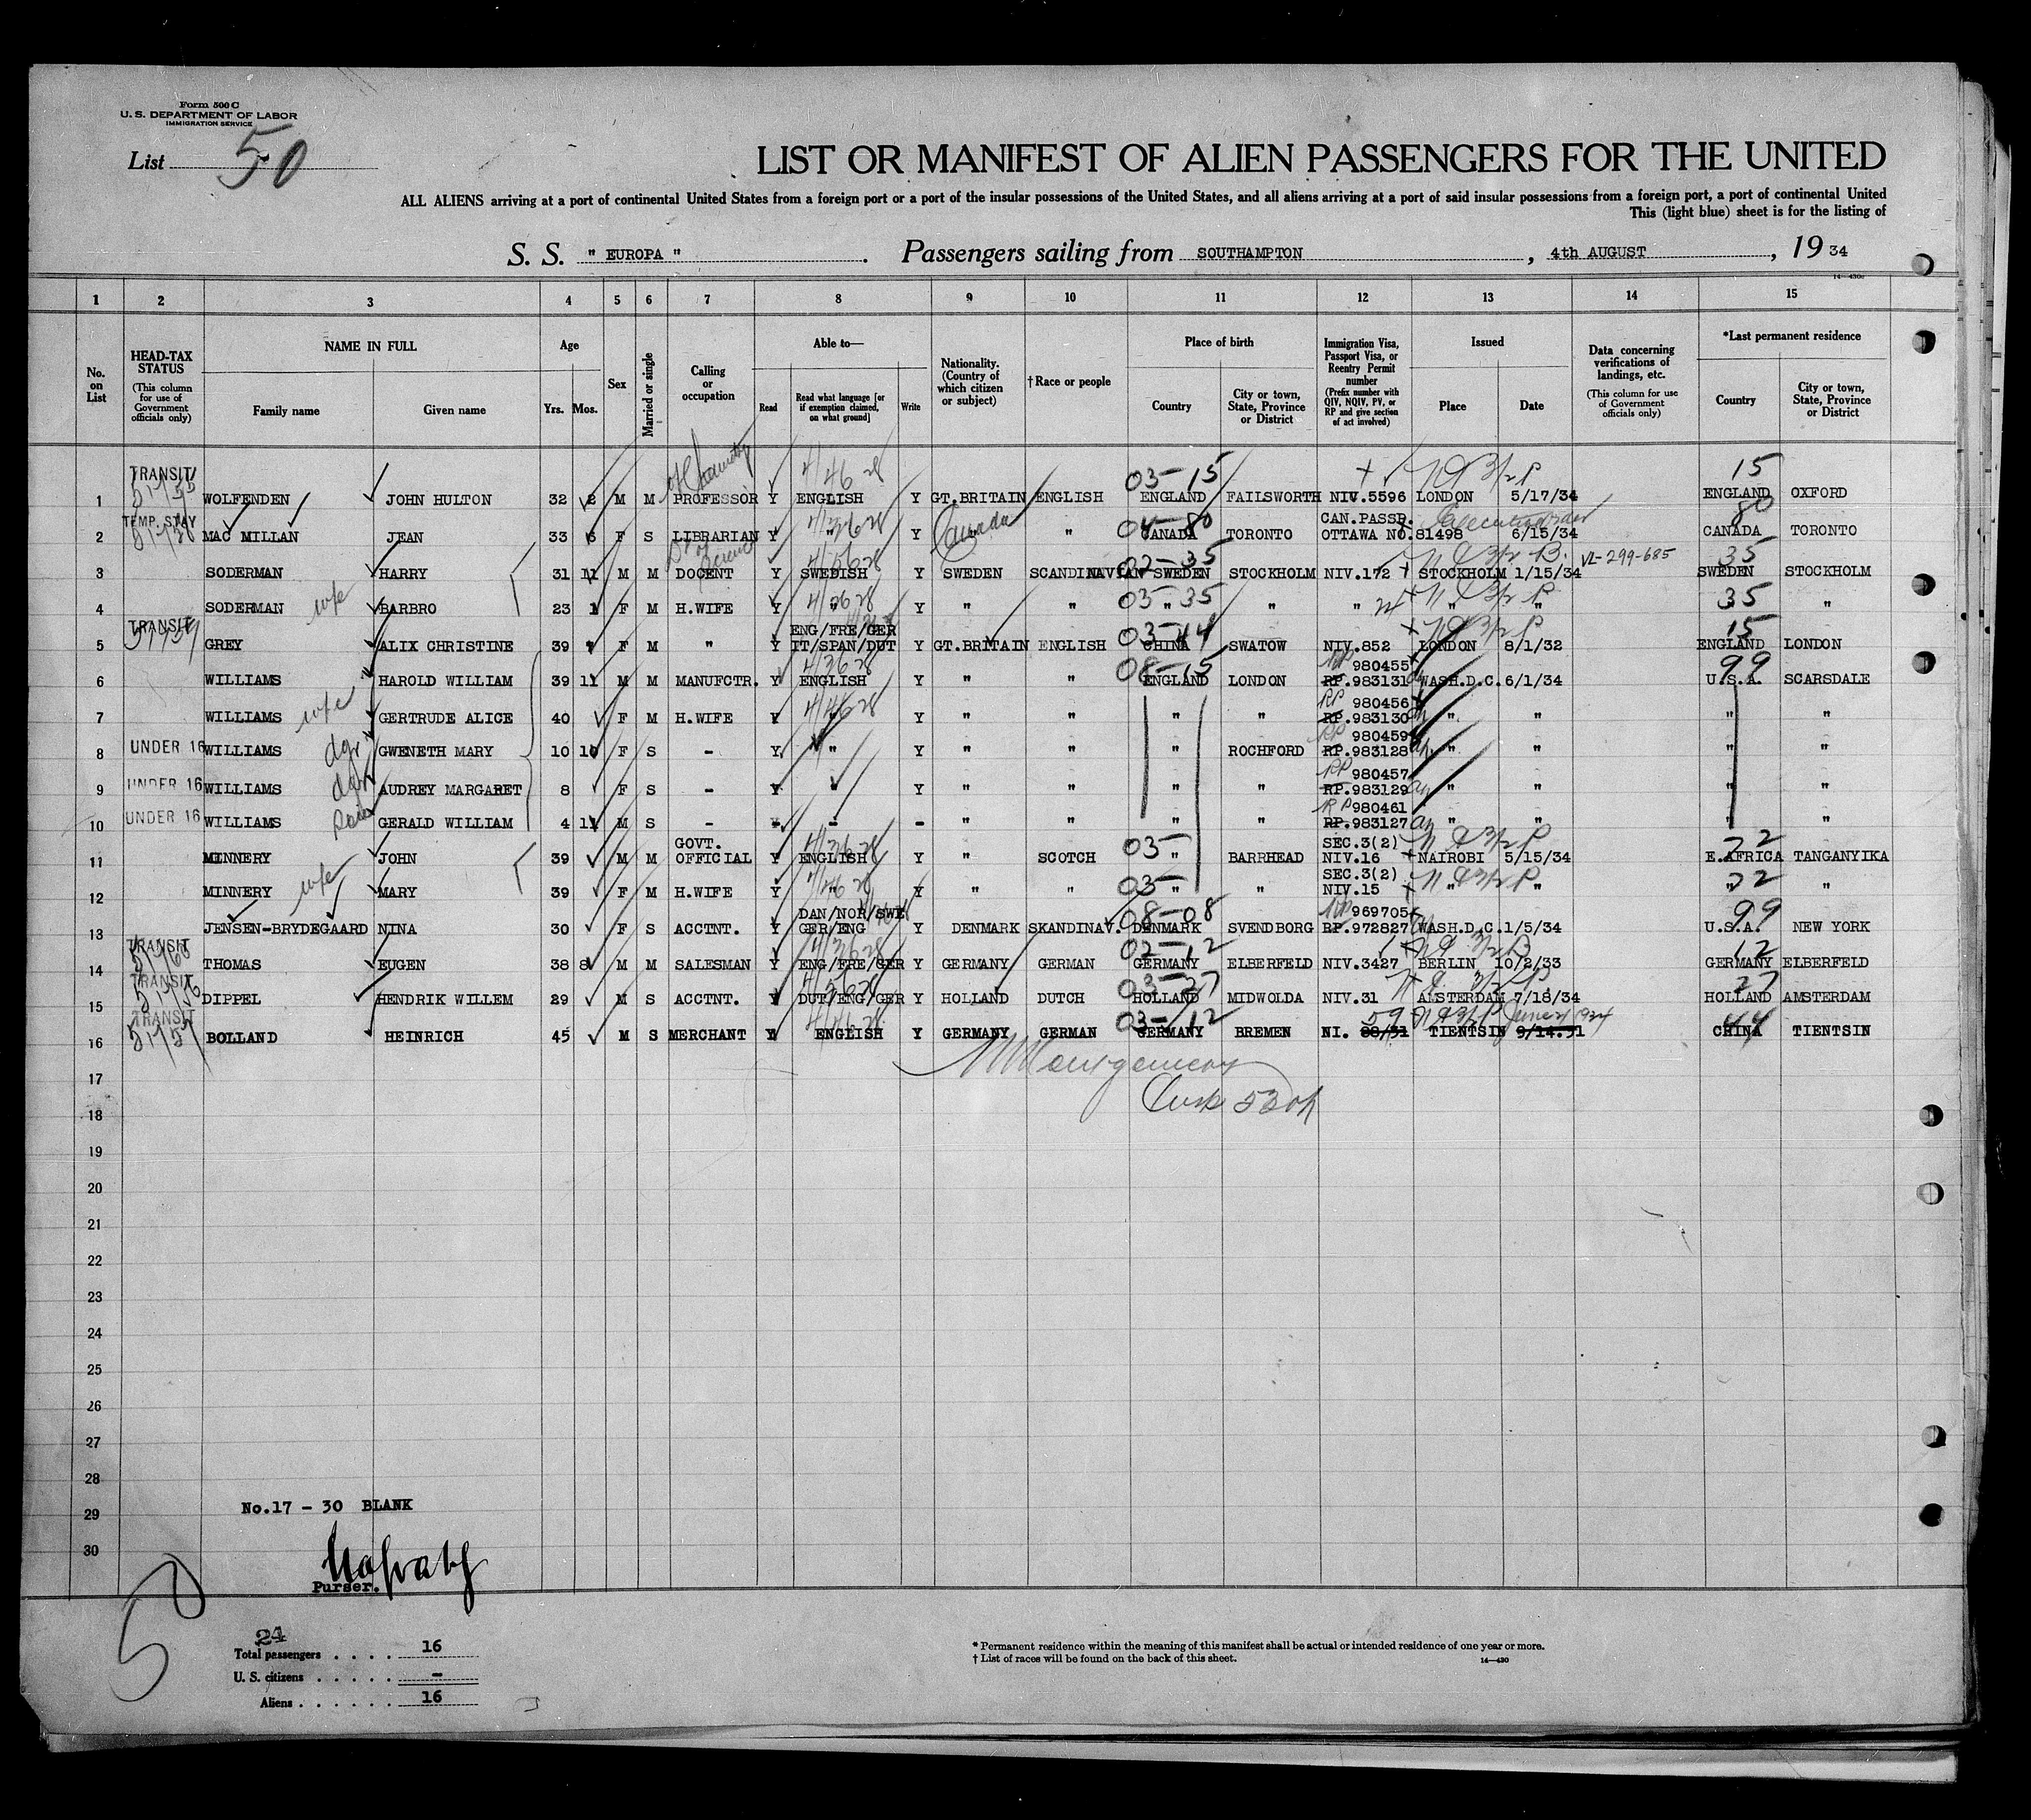 Form 500 C
U. S. DEPARTMENT OF LABOR
IMMIGRATION SERVICE
List 50
LIST OR MANIFEST OF ALIEN PASSENGERS FOR THE UNITED
ALL ALIENS arriving at a port of continental United States from a foreign port or a port of the insular possessions of the United States, and all aliens arriving at a port of said insular possessions from a foreign port, a port of continental United
This (light blue) sheet is for the listing of
S. S. " EUROPA ". Passengers sailing from SOUTHAMPTON, 4th AUGUST, 1934
14—430
1 2 3 4 5 6 7 8 9 10 11 12 13 14 15
No. on List
HEAD-TAX STATUS (This column for use of Government officials only)
NAME IN FULL Family name Given name
Age Yrs. Mos.
Sex
Married or single
Calling or occupation
Able to— Read Read what language [or if exemption claimed, on what ground] Write
Nationality. (Country of which citizen or subject)
†Race or people
Place of birth Country City or town, State, Province or District
Immigration Visa, Passport Visa, or Reentry Permit number (Prefix number with QIV, NQIV, PV, or RP and give section of act involved)
Issued Place Date
Data concerning verifications of landings, etc. (This column for use of Government officials only)
*Last permanent residence Country City or town, State, Province or District
TRANSIT 03-15 15
1 WOLFENDEN JOHN HULTON 32 2 M M PROFESSOR Y ENGLISH Y GT.BRITAIN ENGLISH ENGLAND FAILSWORTH NIV.5596 LONDON 5/17/34 ENGLAND OXFORD
TEMP. STAY Canada 04-80 CAN.PASSP. 80
2 MAC MILLAN JEAN 33 6 F S LIBRARIAN Y " Y " CANADA TORONTO OTTAWA NO.81498 6/15/34 CANADA TORONTO
02-35 VL-299-685 35
3 SODERMAN HARRY 31 11 M M DOCENT Y SWEDISH Y SWEDEN SCANDINAVIAN SWEDEN STOCKHOLM NIV.172 STOCKHOLM 1/15/34 SWEDEN STOCKHOLM
03-35 35
4 SODERMAN wife BARBRO 23 1 F M H.WIFE Y " Y " " " " " " " " "
TRANSIT ENG/FRE/GER 03-44 15
5 GREY ALIX CHRISTINE 39 F M " Y IT/SPAN/DUT Y GT.BRITAIN ENGLISH CHINA SWATOW NIV.852 LONDON 8/1/32 ENGLAND LONDON
08-15 RP 980455 99
6 WILLIAMS HAROLD WILLIAM 39 11 M M MANUFCTR. Y ENGLISH Y " " ENGLAND LONDON RP.983131 WASH.D.C. 6/1/34 U.S.A. SCARSDALE
RP 980456
7 WILLIAMS wife GERTRUDE ALICE 40 F M H.WIFE Y " Y " " " " RP.983130 " " " "
RP 980459
8 UNDER 16 WILLIAMS dgr GWENETH MARY 10 10 F S - Y " Y " " " ROCHFORD RP.983128 " " " "
RP 980457
9 UNDER 16 WILLIAMS dgr AUDREY MARGARET 8 F S - Y Y " " " " RP.983129 " " " "
RP 980461
10 UNDER 16 WILLIAMS GERALD WILLIAM 4 11 M S - - - - " " " " RP.983127 " " " "
GOVT. 03- SEC.3(2) 22
11 MINNERY JOHN 39 M M OFFICIAL Y ENGLISH Y " SCOTCH " BARRHEAD NIV.16 NAIROBI 5/15/34 E.AFRICA TANGANYIKA
03- SEC.3(2) 22
12 MINNERY wife MARY 39 F M H.WIFE Y " Y " " " " NIV.15 " " " "
DAN/NOR/SWE 08-08 RP 969705 99
13 JENSEN-BRYDEGAARD NINA 30 F S ACCTNT. Y GER/ENG Y DENMARK SKANDINAV. DENMARK SVENDBORG RP.972827 WASH.D.C. 1/5/34 U.S.A. NEW YORK
TRANSIT 02-12 12
14 THOMAS EUGEN 38 8 M M SALESMAN Y ENG/FRE/GER Y GERMANY GERMAN GERMANY ELBERFELD NIV.3427 BERLIN 10/2/33 GERMANY ELBERFELD
TRANSIT 03-27 27
15 DIPPEL HENDRIK WILLEM 29 M S ACCTNT. Y DUT/ENG/GER Y HOLLAND DUTCH HOLLAND MIDWOLDA NIV.31 AMSTERDAM 7/18/34 HOLLAND AMSTERDAM
TRANSIT 03-12 59 June 21 1934 44
16 BOLLAND HEINRICH 45 M S MERCHANT Y ENGLISH Y GERMANY GERMAN GERMANY BREMEN NI. 88/31 TIENTSIN 9/14.31 CHINA TIENTSIN
17
18
19
20
21
22
23
24
25
26
27
28
29
30
No.17 - 30 BLANK
Purser.
50
24
Total passengers . . . . 16
U. S. citizens . . . . . -
Aliens . . . . . . 16
* Permanent residence within the meaning of this manifest shall be actual or intended residence of one year or more.
† List of races will be found on the back of this sheet.
14—430